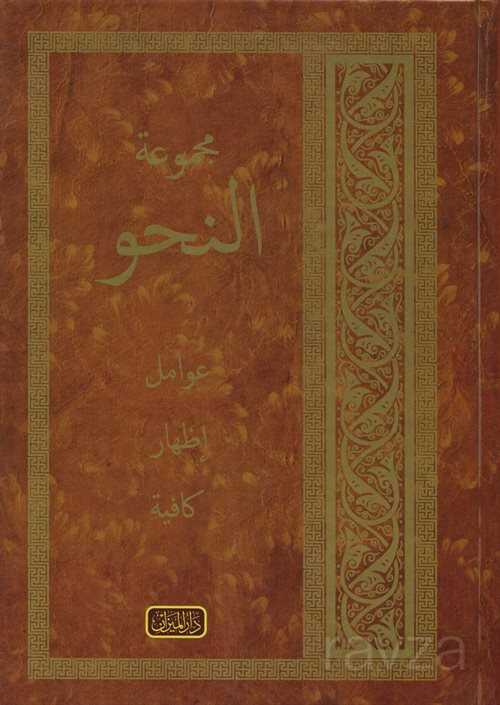 مجموعة
النحو
عوامل
إظهار
كافية
دار الميزان
ravza